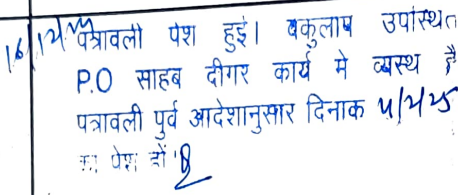 16/12/24 पत्रावली पेश हुई। वकुलाय उपस्थित
P.O साहब दीगर कार्य मे व्यस्थ है
पत्रावली पुर्व आदेशानुसार दिनाक 4/2/25
का पेश हों